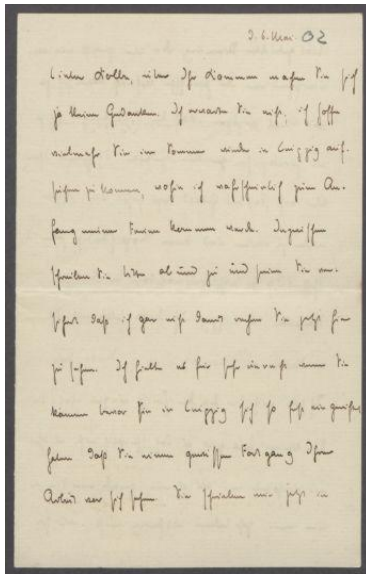 D. 6. Mai 02
Lieber Kolbe, über Ihr Kommen machen Sie sich
ja keine Gedanken. Ich erwarte Sie nicht, ich hoffe
vielmehr Sie im Sommer wieder in Leipzig auf-
suchen zu können, wohin ich wahrscheinlich zum An-
fang meiner Ferien kommen werde. Inzwischen
schreiben Sie bitte ab und zu und seien Sie ver-
sichert daß ich gar nicht damit rechne Sie jetzt hier
zu sehen. Ich hielte es für sehr wenn Sie
kämen bevor Sie in Leipzig sich so fest eingerichtet
haben daß Sie einen gewissen Fortgang Ihrer
Arbeit vor sich sehen. Sie schrieben mir jetzt in